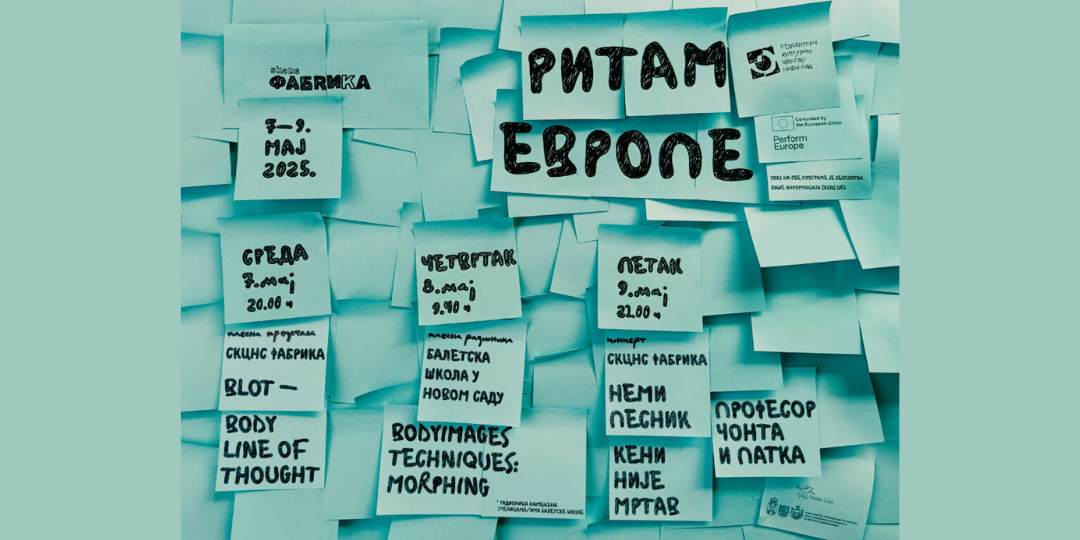 skcns
ФАБRИКА
7—9.
МАЈ
2025.
РИТАМ
ЕВРОПЕ
СТУДЕНТСКИ
КУЛТУРНИ
ЦЕНТАР
НОВИ САД
Co-funded by
the European Union
Perform
Europe
УЛАЗ НА СВЕ ПРОГРАМЕ ЈЕ БЕСПЛАТАН.
ВИШЕ ИНФОРМАЦИЈА SKCNS.ORG
СРЕДА
7. мај
20.00 ч
плесна представа
СКЦНС ФАБРИКА
BLOT —
BODY
LINE OF
THOUGHT
ЧЕТВРТАК
8. мај
9.40 ч
плесна радионица
БАЛЕТСКА
ШКОЛА У
НОВОМ САДУ
BODYIMAGES
TECHNIQUES:
MORPHING
* РАДИОНИЦА НАМЕЊЕНА
УЧЕНИЦАМА/ИМА БАЛЕТСКЕ ШКОЛЕ
ПЕТАК
9. мај
21.00 ч
концерт
СКЦНС ФАБРИКА
НЕМИ
ПЕСНИК
КЕНИ
НИЈЕ
МРТАВ
ПРОФЕСОР
ЧОНТА
И ПАТКА
Град Нови Сад